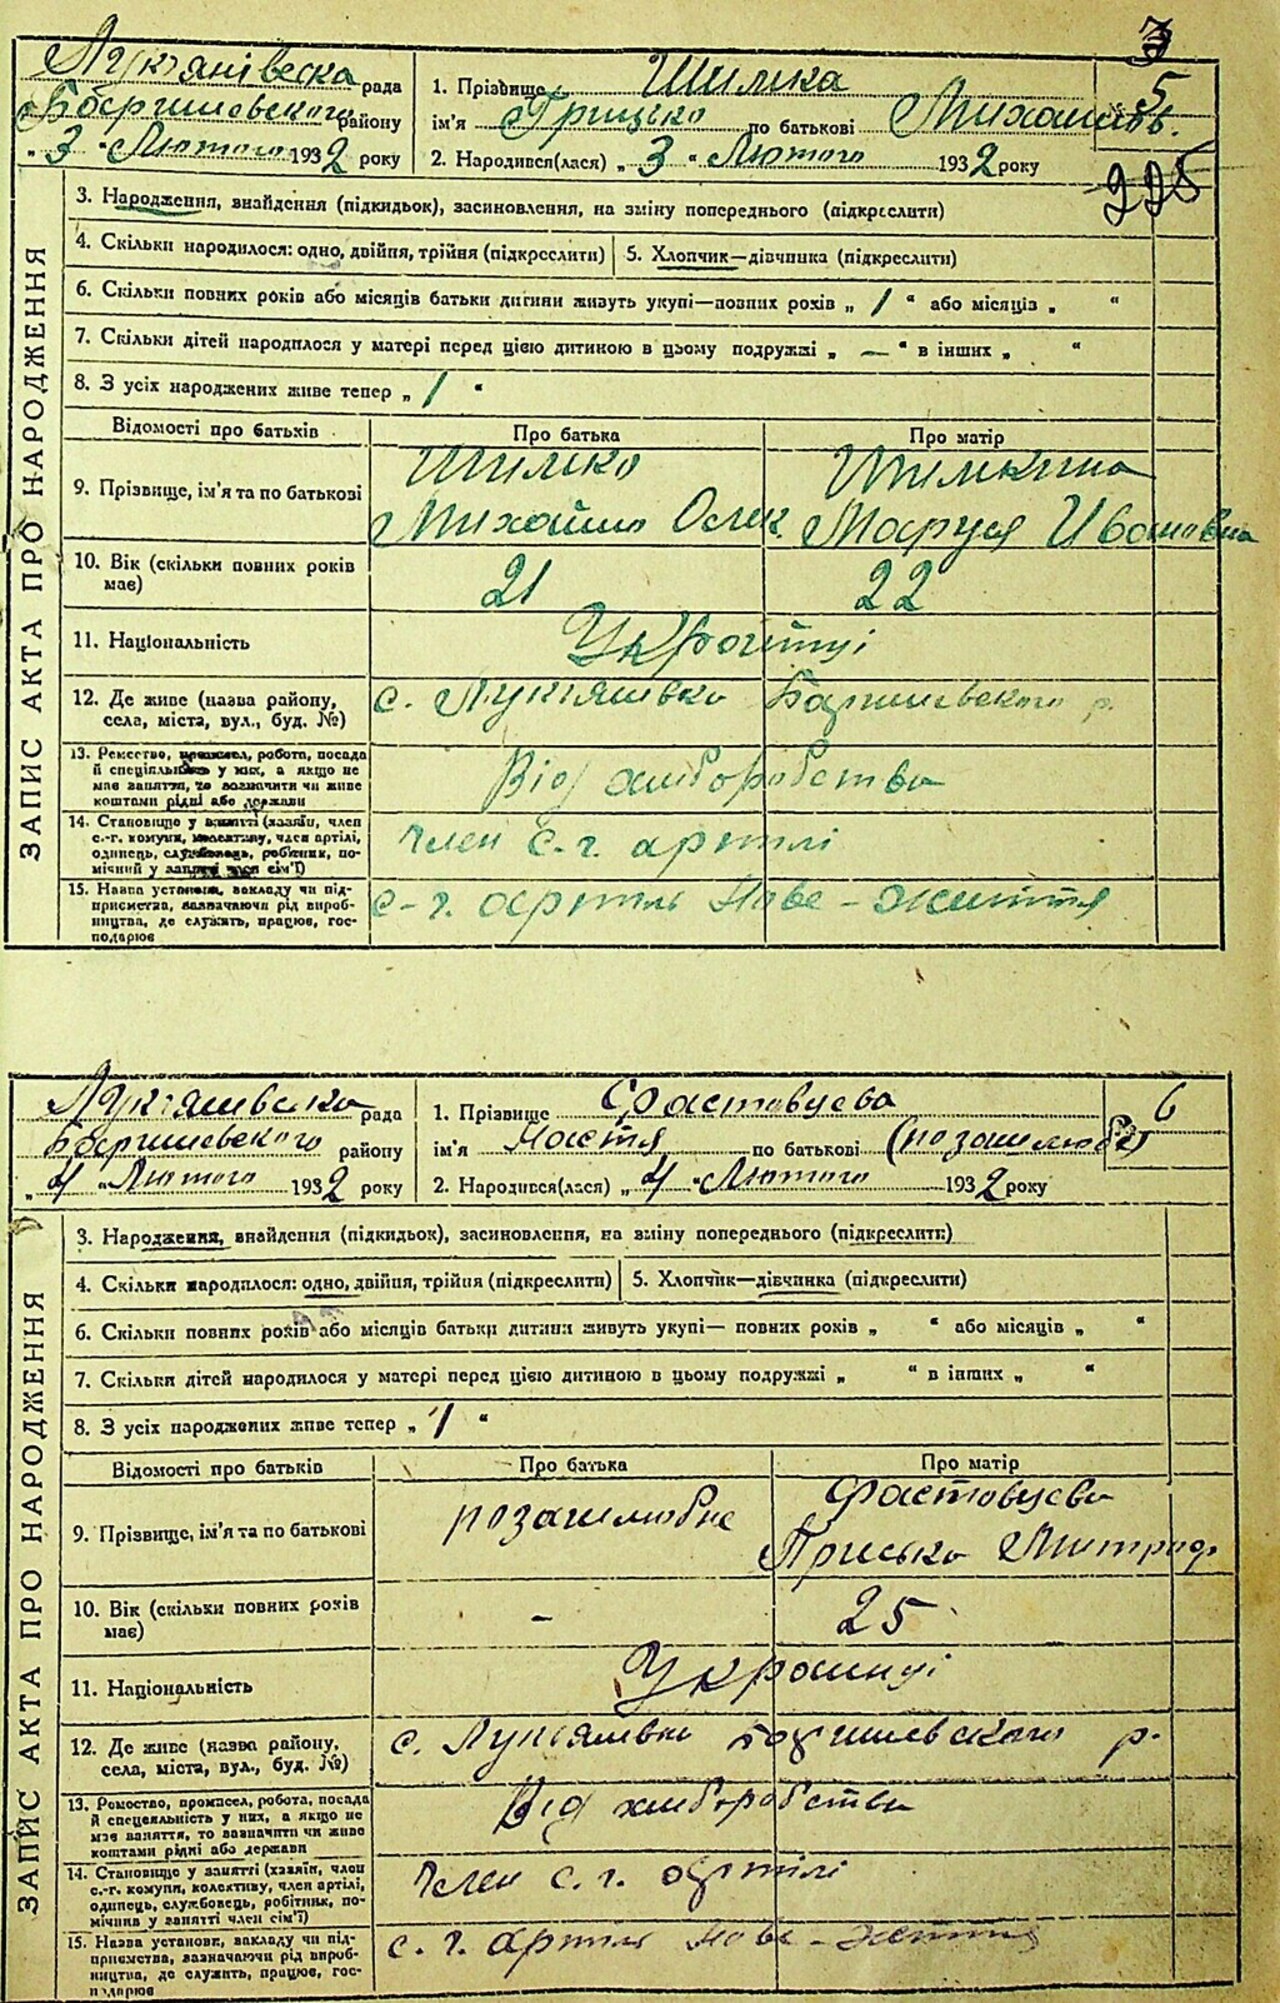 3
Лукянівска рада
Баришевского району
„ 3 “ Лютого 1932 року
1. Прізвище Шимка
ім'я Грицько по батькові Михайлов.
2. Народився(лася) „ 3 “ Лютого 1932 року
5
225
ЗАПИС АКТА ПРО НАРОДЖЕННЯ
3. Народження, знайдення (підкидьок), засиновлення, на зміну попереднього (підкреслити)
4. Скільки народилося: одно, двійня, трійня (підкреслити)
5. Хлопчик—дівчинка (підкреслити)
6. Скільки повних років або місяців батьки дитини живуть укупі—повних років „ 1 “ або місяців „ “
7. Скільки дітей народилося у матері перед цією дитиною в цьому подружжі „ — “ в інших „ “
8. З усіх народжених живе тепер „ 1 “
Відомості про батьків
Про батька
Про матір
9. Прізвище, ім'я та по батькові
Шимко
Михайло Олек.
Шимкина
Маруся Ивановна
10. Вік (скільки повних років
має)
21
22
11. Національність
Українці
12. Де живе (назва району,
села, міста, вул., буд. №)
с. Лукяновка Баришевского р.
13. Ремество, промисел, робота, посада
й спеціяльність у них, а якщо не
має заняття, то зазначити чи живе
коштами рідні або держави
Від хлиборобства
14. Становище у занятті (хазяїн, член
с.-г. комуни, колективу, член артілі,
одинець, службовець, робітник, по-
мічний у занятті член сім'ї)
Член с. г. артілі
15. Назва установи, закладу чи під-
приємства, зазначаючи рід вироб-
ництва, де служить, працює, гос-
подарює
с-г. артиль Нове-життя
Лукяновска рада
Баришевского району
„ 4 “ Лютого 1932 року
1. Прізвище Фастовцева
ім'я Настя по батькові (позашлюбне)
2. Народився(лася) „ 4 “ Лютого 1932 року
6
ЗАПИС АКТА ПРО НАРОДЖЕННЯ
3. Народження, знайдення (підкидьок), засиновлення, на зміну попереднього (підкреслити)
4. Скільки народилося: одно, двійня, трійня (підкреслити)
5. Хлопчик—дівчинка (підкреслити)
6. Скільки повних років або місяців батьки дитини живуть укупі— повних років „ “ або місяців „ “
7. Скільки дітей народилося у матері перед цією дитиною в цьому подружжі „ “ в інших „ “
8. З усіх народжених живе тепер „ 1 “
Відомості про батьків
Про батька
Про матір
9. Прізвище, ім'я та по батькові
позашлюбне
Фастовцева
Приська Митроф.
10. Вік (скільки повних років
має)
-
25
11. Національність
Українці
12. Де живе (назва району,
села, міста, вул., буд. №)
с. Лукяновка Баришевского р.
13. Ремество, промисел, робота, посада
й спецеяльність у них, а якщо не
має заняття, то зазначити чи живе
коштами рідні або держави
Від хлиборобства
14. Становище у занятті (хазяїн, член
с.-г. комуни, колективу, член артілі,
одинець, службовець, робітник, по-
мічний у занятті член сім'ї)
Член с. г. артілі
15. Назва установи, закладу чи під-
приємства, зазначаючи рід вироб-
ництва, де служить, працює, гос-
подарює
с. г. артиль Нове-життя